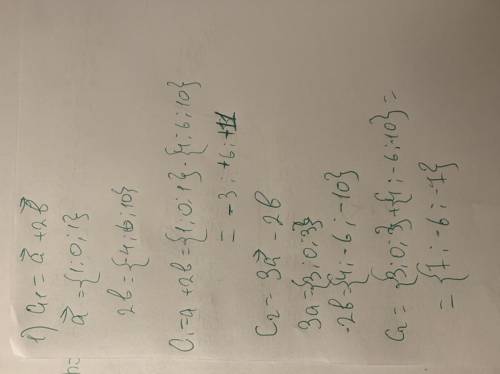 1) a₁ = a⃗ + 2b⃗
a⃗ = {1; 0; 1}
2b = {4; 6; 10}
C₁ = a + 2b = {1; 0; 1} · {4; 6; 10}
= -3; +6; +11
C₂ = 3a⃗ - 2b
3a = {3; 0; 3}
-2b = {4; -6; -10}
C₂ = {3; 0; 3} + {4; -6; -10} =
= {7; -6; -7}